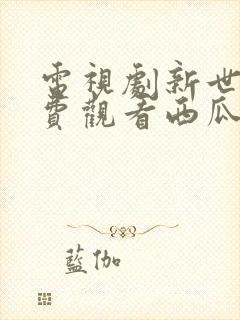 電視劇新世
費觀看西瓜
藍伽